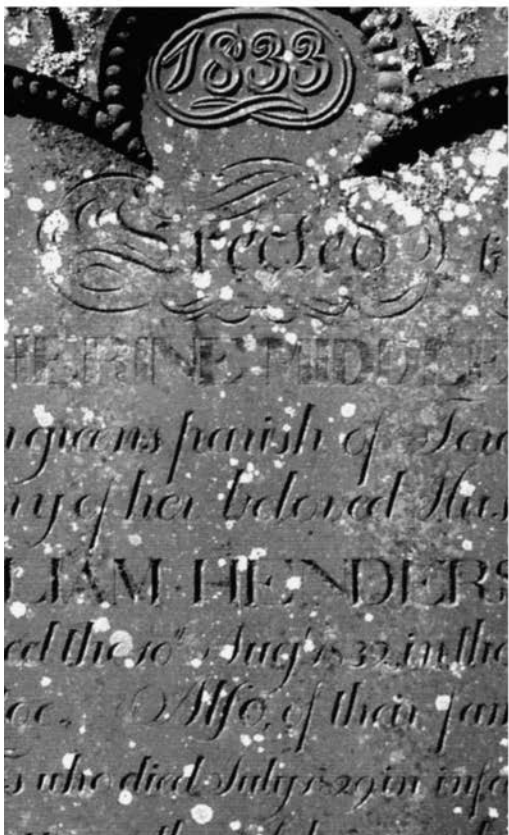 1833
Erected
HERINE MIDDLE
greens parish of
ry of her beloved Hus
LIAM HENDERS
ed the 10th Augt 1832, in the
ge. Also, of their fam
s who died July 1829 in infa